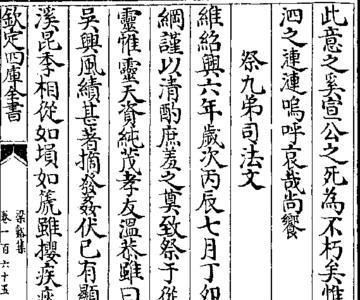 此意之奚宣公之死為不朽矣惟
泗之漣漣嗚呼哀哉尚饗
祭九弟司法文
維紹興六年歲次丙辰七月丁
綱謹以清酌庶羞之奠致祭于從
靈惟靈天資純茂孝友溫恭雖曰
吳興風績甚著摘發姦伏已有顯
溪昆季相從如塤如箎雖攖疾疢
欽定四庫全書
梁谿集
卷一百六十五